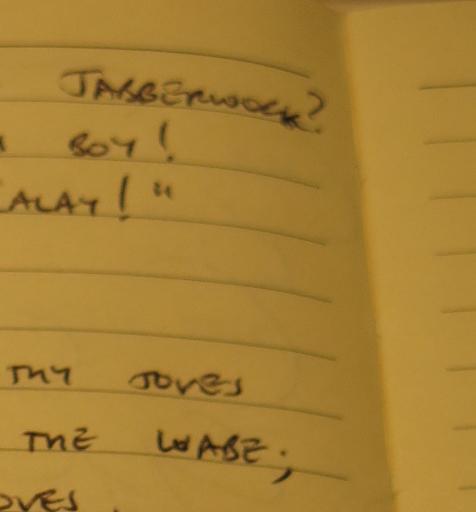 JABBERWOCK?
BOY!
CALAY!"
THY TOVES
THE WABE;
OVES